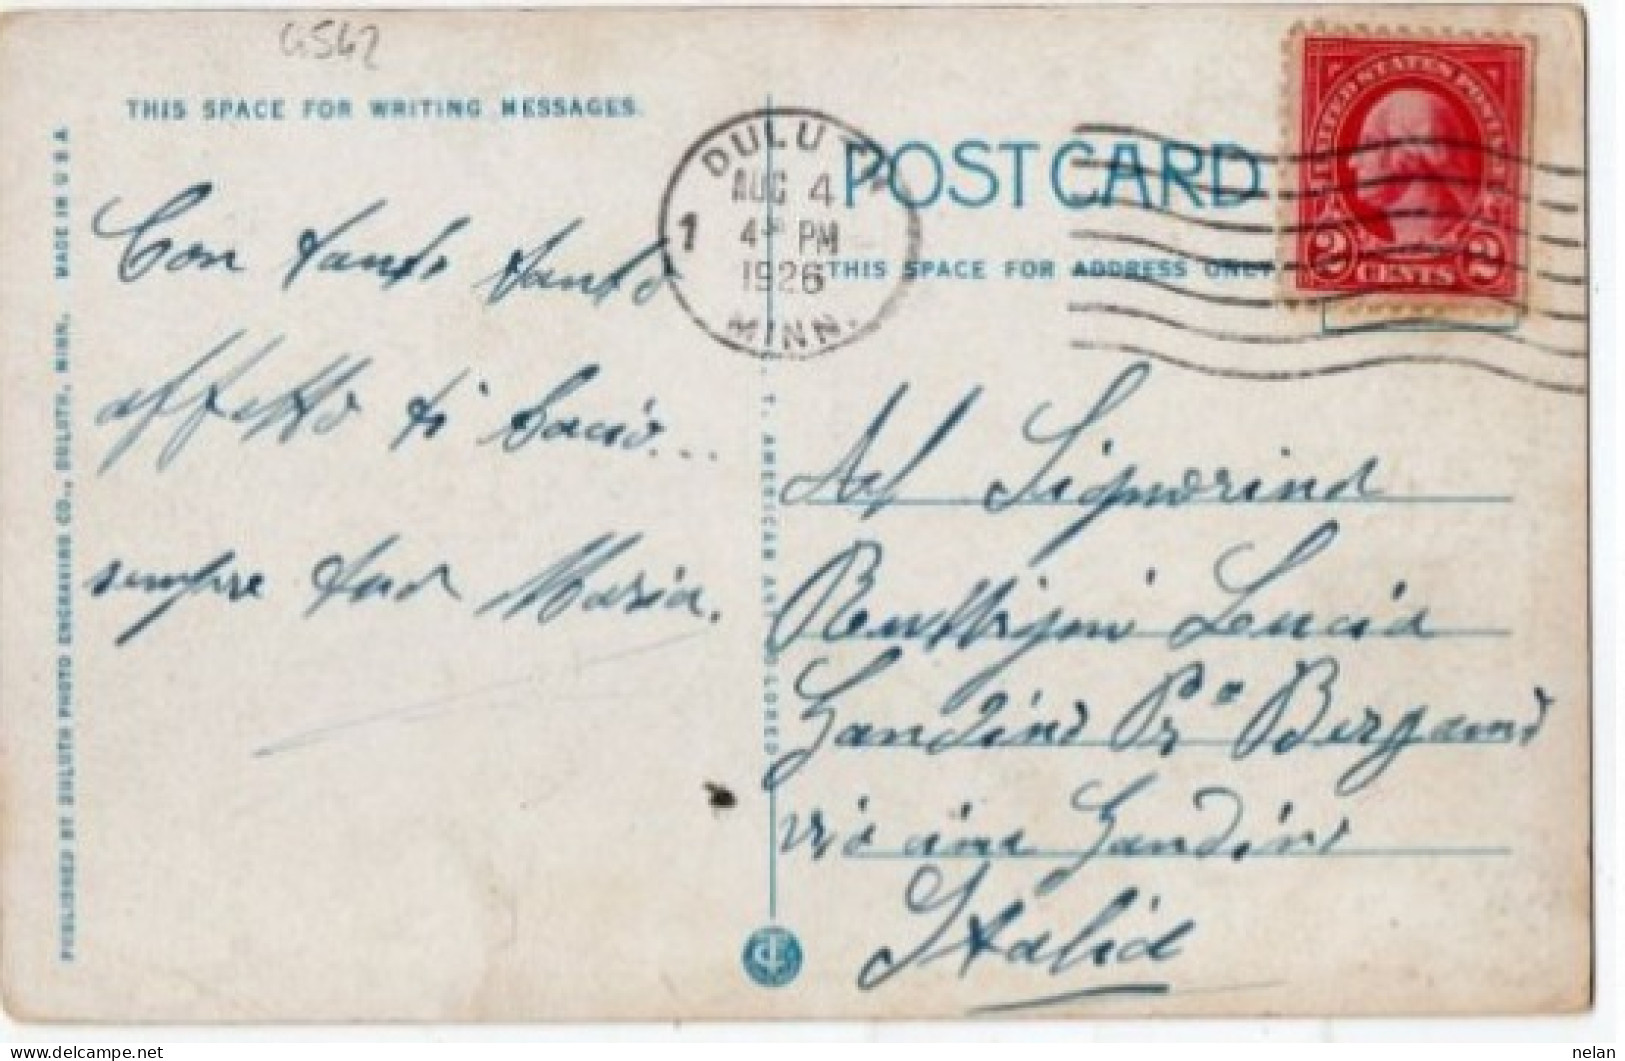 G562
THIS SPACE FOR WRITING MESSAGES.
Con tanto tanto
affetto ti bacio...
sempre tua Maria.
PUBLISHED BY DULUTH PHOTO ENGRAVING CO., DULUTH, MINN. MADE IN U.S.A
DULUTH
AUG 4
1 4 PM
1926
MINN.
POST CARD
THIS SPACE FOR ADDRESS ONLY
UNITED STATES POSTAGE
2 CENTS 2
C. T. AMERICAN ART COLORED
Al Signorina
Lucia
Gandino Pr a Bergamo
via Gandino
Italia
nelan